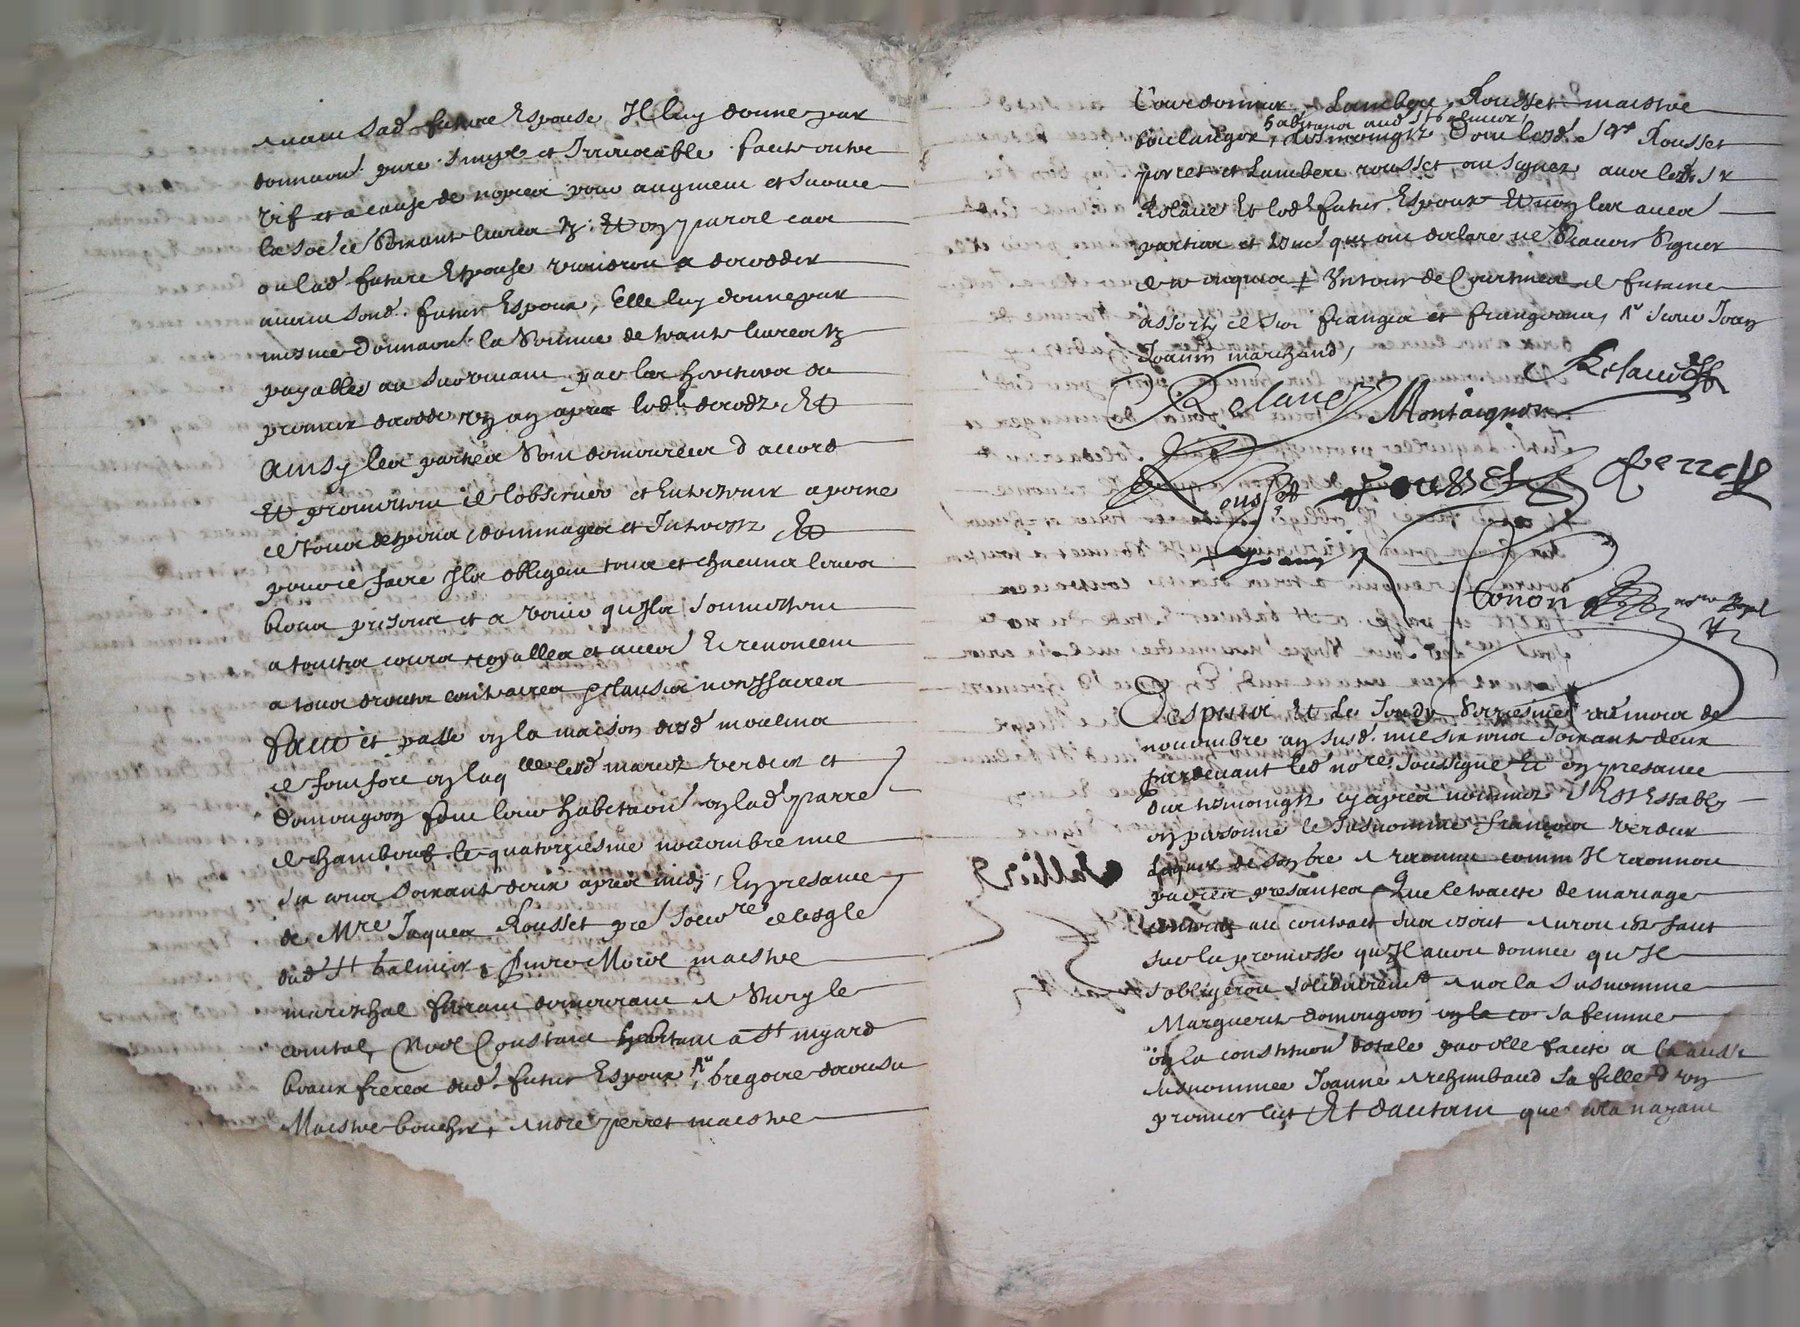 avant sad. future Espouse Il luy donne par
donnaon. pure simple et Irrevocable faicte entre
vif et a cause de nopces pour augment et survie
la so.e de soixante livres tz. Et en pareil cas
ou lad. future Espouse viendroit a deceder
avant sond. futur Espoux, Elle luy donne par
mesme donnaon. la somme de trante livres tz
payables au survivant par les heritiers du
premier decede un an apres led. decedz Et
Ainsy les parties sont demeurees d accord
Et promettent de l observer et entretenir a peine
de tous despens dommages et Interestz Et
pour ce faire Ils obligent tous et chacuns leurs
biens presens et a venir qu Ils soumettent
a toutes cours royalles et autres Et renoncent
a tous droictz contraires clauses necessaires
faict et passé en la maison desd. moulins
de fontfore en laq.lle lesd. mariez verdier et
domengeon font leur habitaon en lad. parre
de chambeuf le quatorziesme novembre mil
six cens soixante deux apres midy, En presance
de Mre Jaques Rousset pre soci.re de l esgle
dud. St balmier, Pierre Morel maistre
mareschal ferrant demeurant a Sury le
comtal, Noel Coustant habitant a St myard
beaux freres dud. futur Espoux, gregoire decousu
Maistre boucher, Andre perret maistre
Courdonnier, Lambert Rousset maistre
boulanger, habitans aud. St balmier, tesmoingtz dont lesd. srs Rousset
perret et Lambert rousset ont signez avec led. Sr
Relave Et led. futur Espoux Et non les autres
parties et tesm. qui ont declare ne scavoir signer
de ce enquis # Un tour de Courtines de futaine
assorty de ses franges et frangeons, sieur Jean
Joanin marchand,
Relave
Relave
Montaignon
Rousset
Rousset
Perret
Joanin
Tonon no.re Royal
Despuis Et Le Jeudy Seziesme du mois de
novembre an susd. mil six cens soixante deux
pardevant led. no.re soussigne Et en presance
des tesmoingtz cy apres nommez s Est Establ
en personne le susnomme françois verdier
Lequel de son gre a recognu comme Il recognoit
par ces presantes Que le traicte de mariage
au contract sus escrit auroit este faict
sur la promesse qu Il avoit donnee qu Il
s obligeroit solidairement avec la susnommee
Marguerite domengeon sa femme
en la constituon dotale par elle faicte a la aussi
susnommee Joanne Archimbaud sa fille d un
premier lict Et d autant que cela n ayant